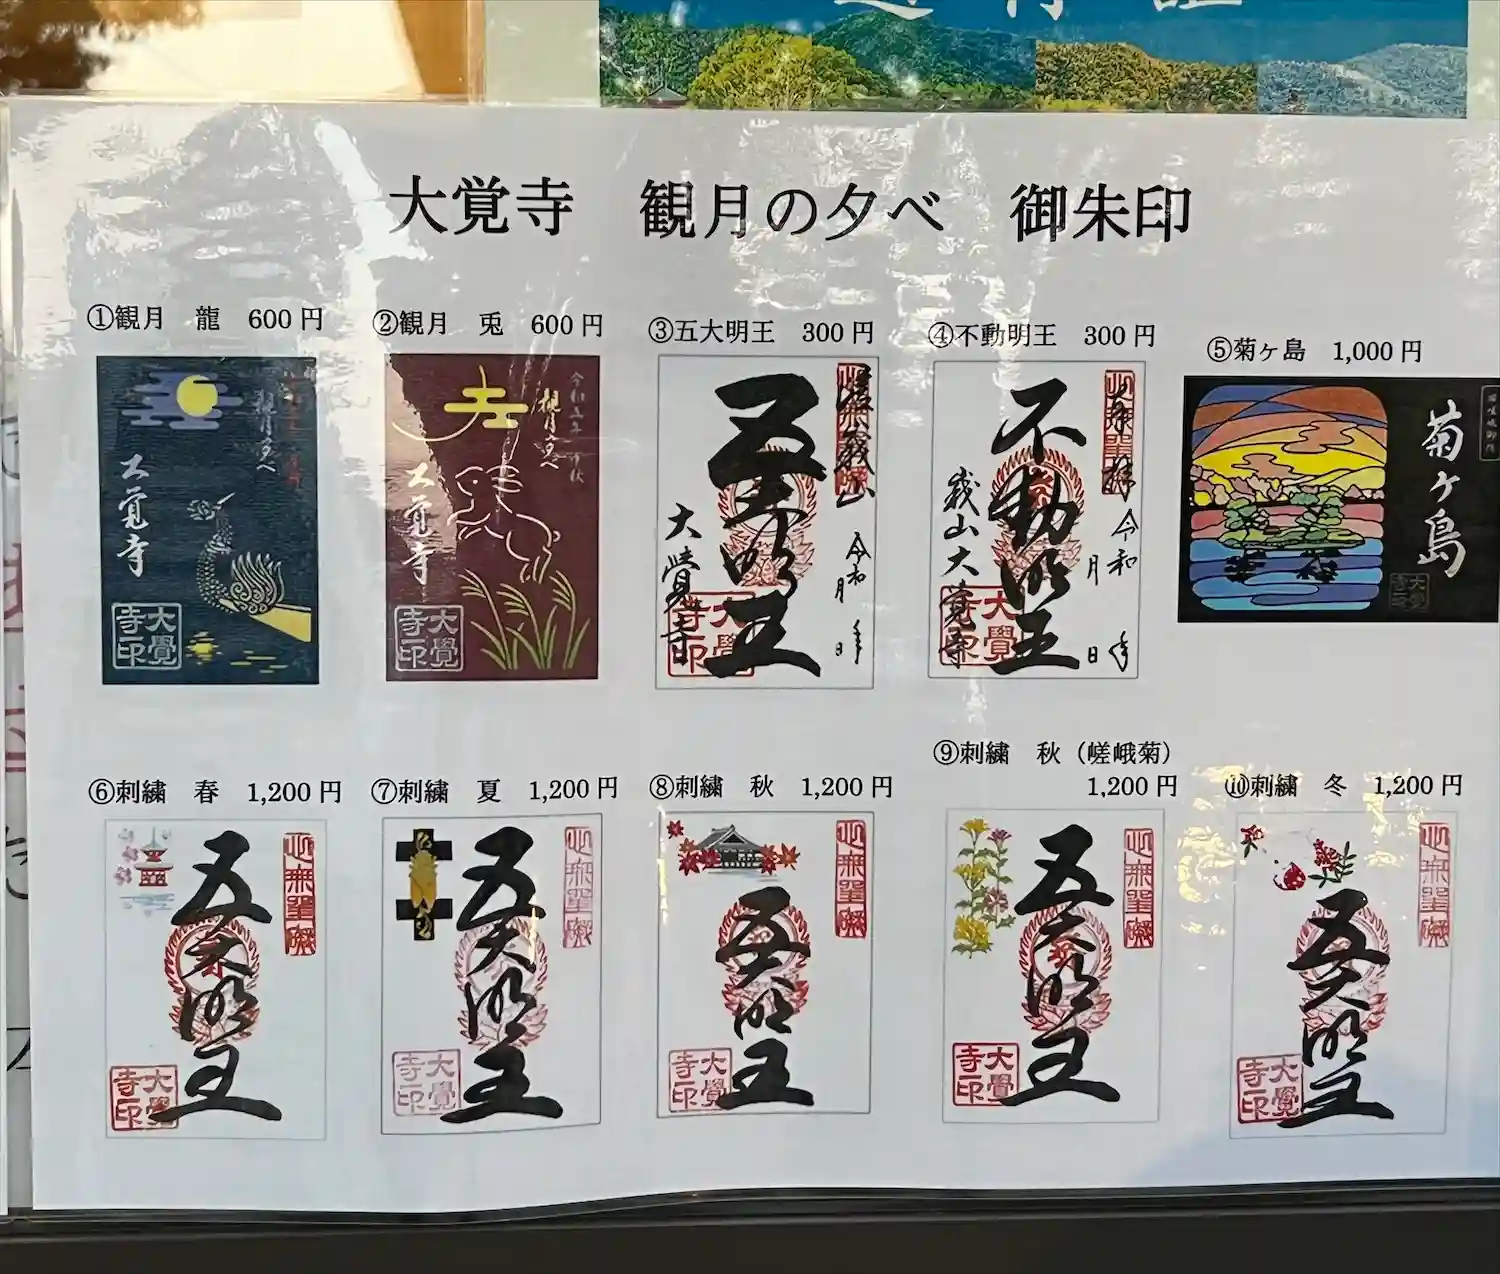 大覚寺 観月の夕べ 御朱印
①観月 龍 600円
②観月 兎 600円
③五大明王 300円
④不動明王 300円
⑤菊ヶ島 1,000円
観月の夕べ
大覚寺
大覺寺印
観月の夕べ
大覚寺
大覺寺印
五大明王
大覺寺
令和 年
月 日
不動明王
嵯峨山大覚寺
令和 年
月 日
菊ヶ島
大覺寺印
⑥刺繍 春 1,200円
⑦刺繍 夏 1,200円
⑧刺繍 秋 1,200円
⑨刺繍 秋（嵯峨菊）
1,200円
⑩刺繍 冬 1,200円
五大明王
大覺寺印
五大明王
大覺寺印
五大明王
大覺寺印
五大明王
大覺寺印
五大明王
大覺寺印